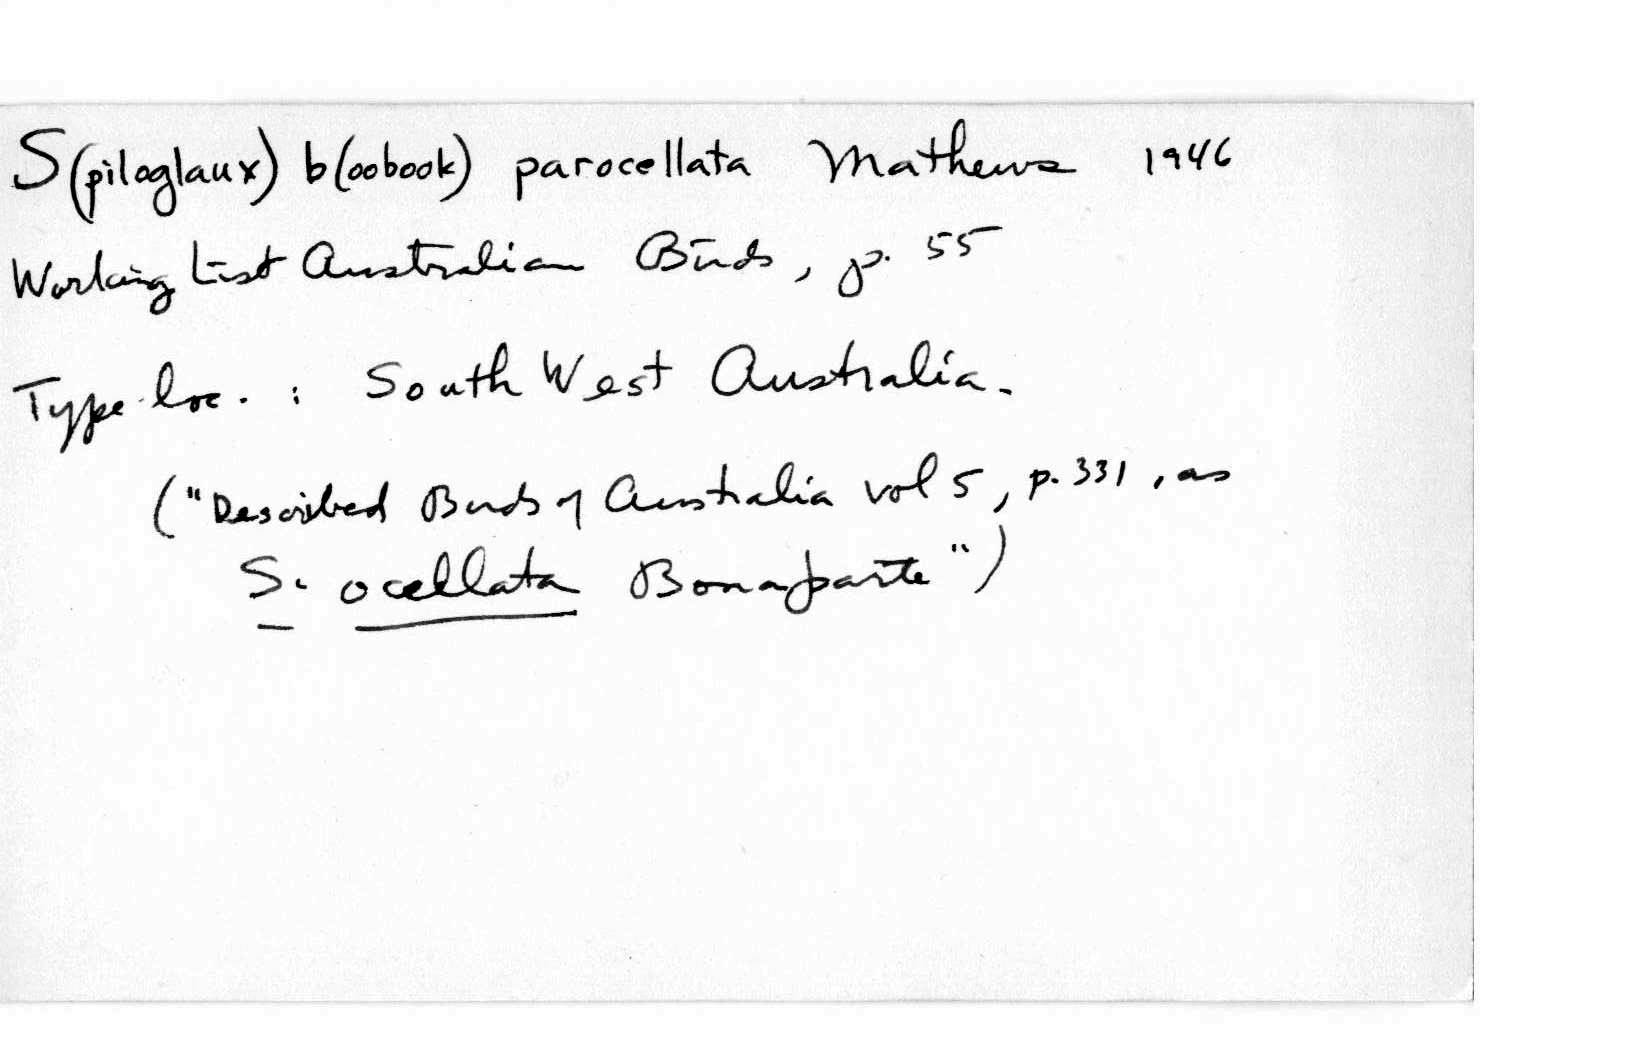 S(piloglaux) b(oobook) parocellata Mathews 1946
Working List Australian Birds, p. 55
Type loc. : South West Australia.
("Described Birds of Australia vol 5, p. 331, as
S. ocellata Bonaparte")